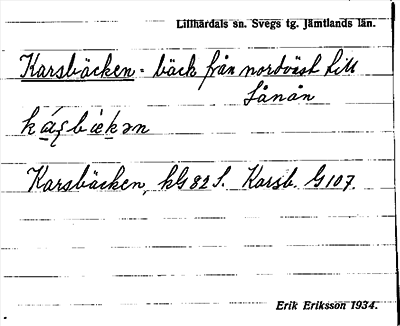 Lillhärdals sn. Svegs tg. Jämtlands län.
Karsbäcken = bäck från nordväst till
Lånån
Karsbäcken, kG 82 S. Karsb. G 107.
Erik Eriksson 1934.